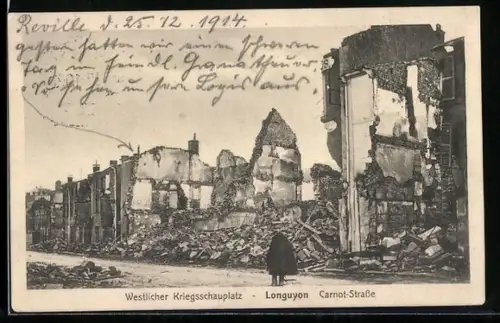 Reville d. 25. 12. 1914.
gestern hatten wir einen schweren
Tag im feindl. Granatfeuer.
So sehen unsere Logis aus.
Westlicher Kriegsschauplatz - Longuyon Carnot-Straße